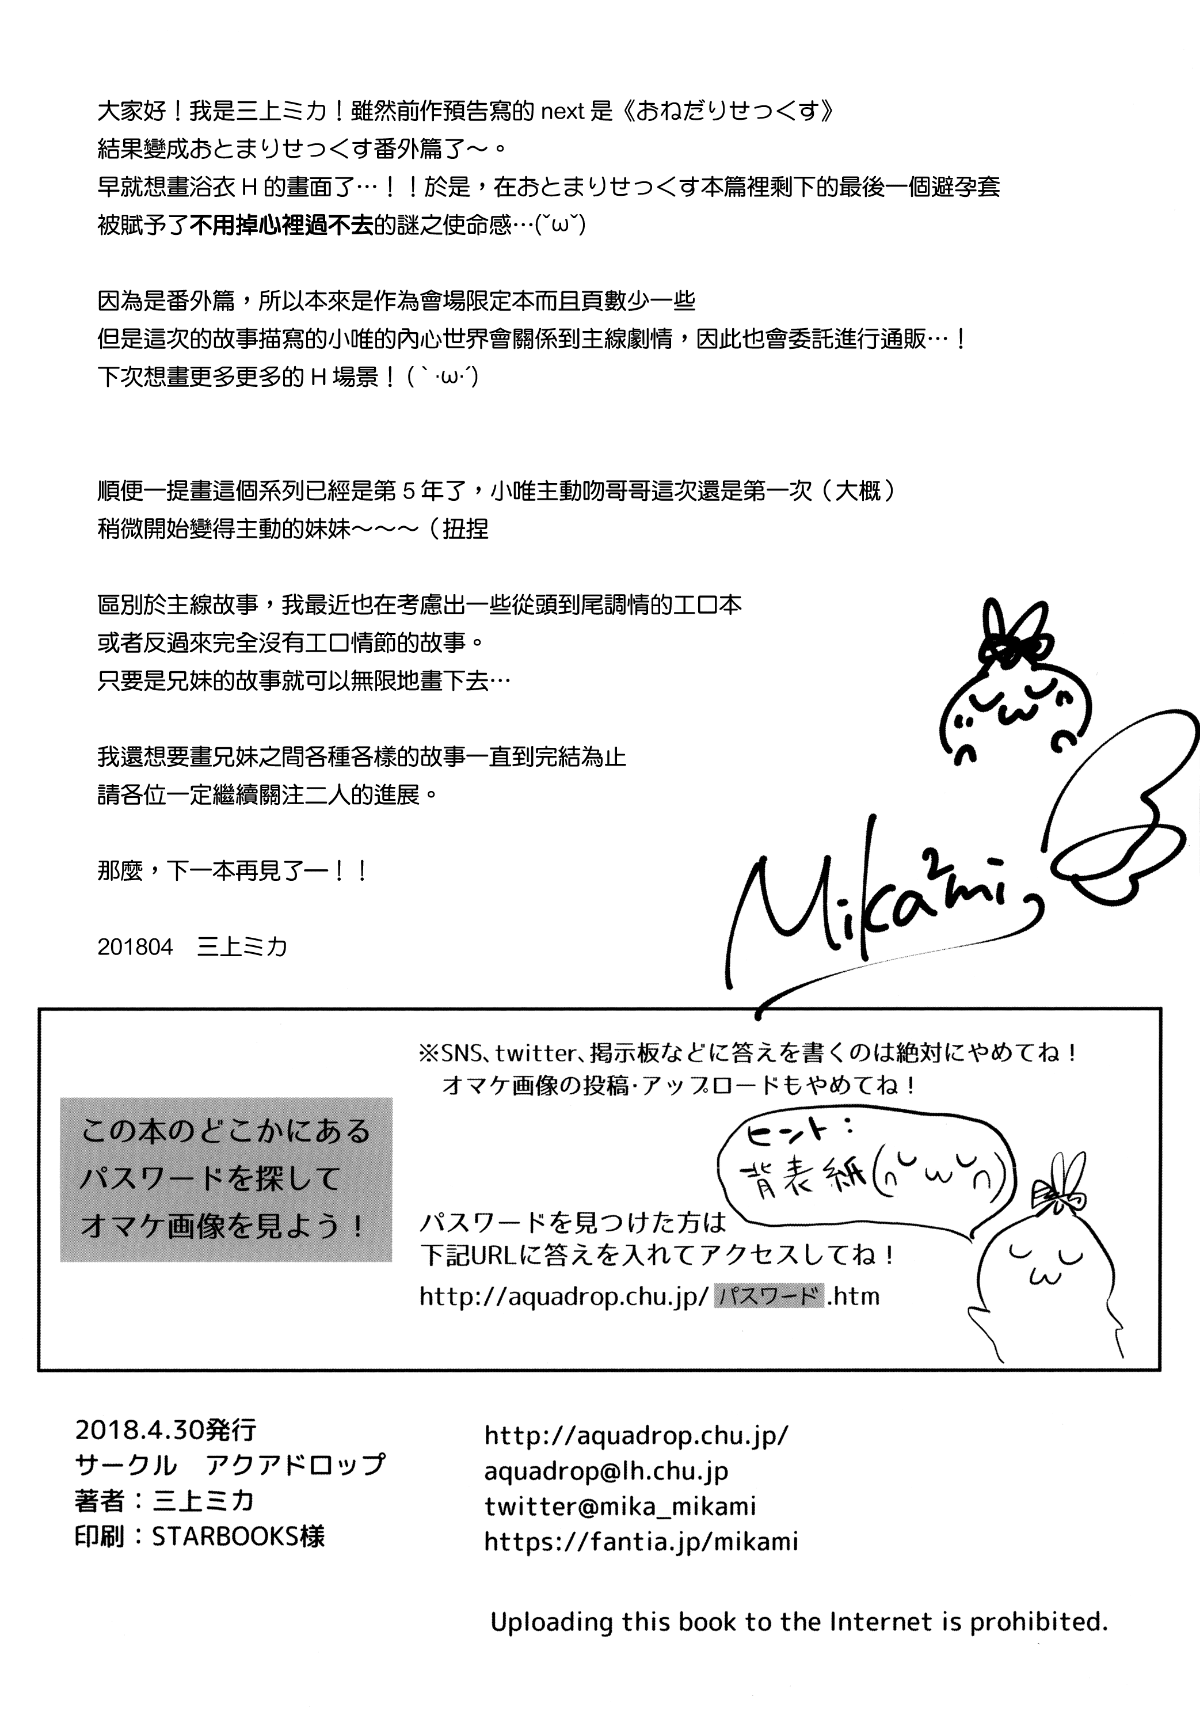 大家好！我是三上ミカ！雖然前作預告寫的 next 是《おねだりせっくす》
結果變成おとまりせっくす番外篇了～。
早就想畫浴衣 H 的畫面了…！！於是，在おとまりせっくす本篇裡剩下的最後一個避孕套
被賦予了不用掉心裡過不去的謎之使命感…(˘ω˘)
因為是番外篇，所以本來是作為會場限定本而且頁數少一些
但是這次的故事描寫的小唯的內心世界會關係到主線劇情，因此也會委託進行通販…！
下次想畫更多更多的 H 場景！(｀·ω·´)
順便一提畫這個系列已經是第 5 年了，小唯主動吻哥哥這次還是第一次（大概）
稍微開始變得主動的妹妹～～～（扭捏
區別於主線故事，我最近也在考慮出一些從頭到尾調情的工口本
或者反過來完全沒有工口情節的故事。
只要是兄妹的故事就可以無限地畫下去…
我還想要畫兄妹之間各種各樣的故事一直到完結為止
請各位一定繼續關注二人的進展。
那麼，下一本再見了ー！！
201804　三上ミカ
Mika²mi
※SNS、twitter、掲示板などに答えを書くのは絶対にやめてね！
オマケ画像の投稿・アップロードもやめてね！
この本のどこかにある
パスワードを探して
オマケ画像を見よう！
ヒント：
背表紙(∩˘ω˘∩)
パスワードを見つけた方は
下記URLに答えを入れてアクセスしてね！
http://aquadrop.chu.jp/ パスワード .htm
2018.4.30発行
サークル　アクアドロップ
著者：三上ミカ
印刷：STARBOOKS様
http://aquadrop.chu.jp/
aquadrop@lh.chu.jp
twitter@mika_mikami
https://fantia.jp/mikami
Uploading this book to the Internet is prohibited.